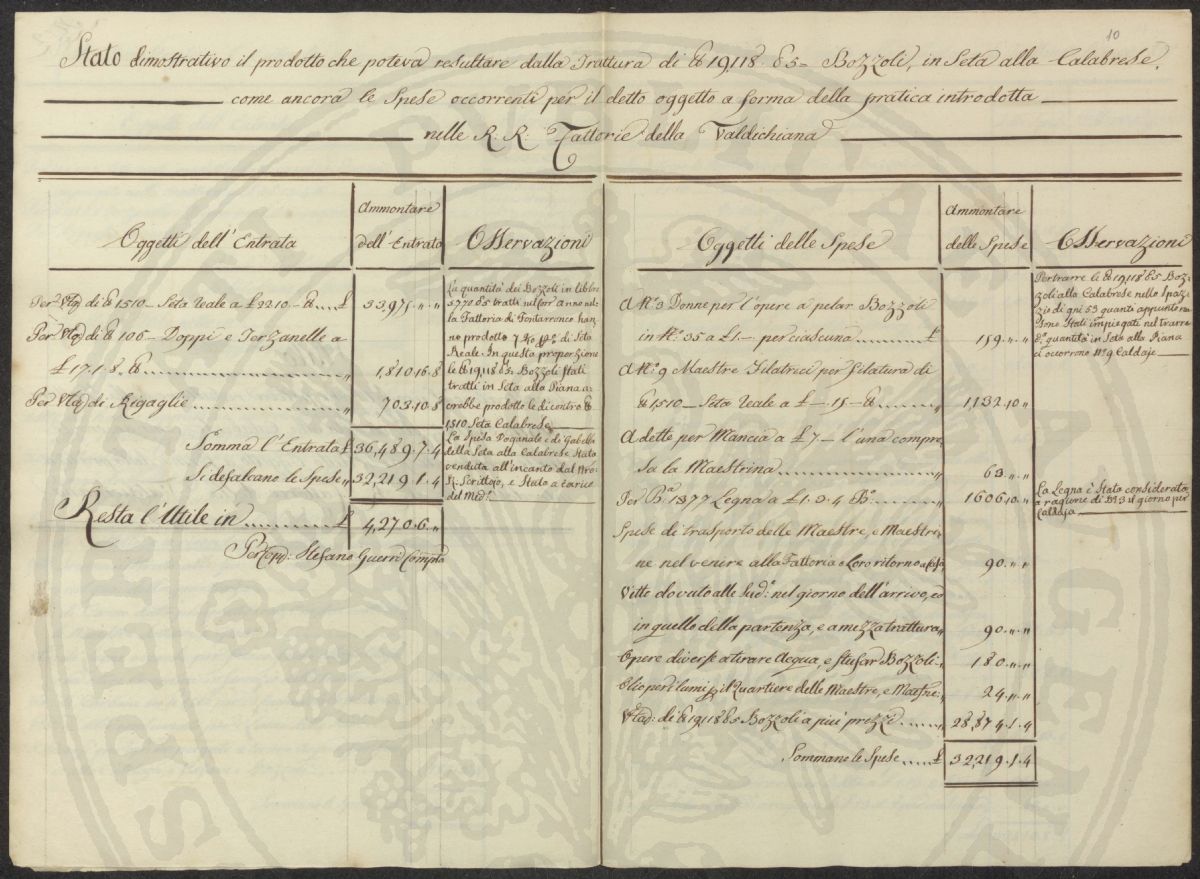 10
Stato dimostrativo il prodotto che poteva resultare dalla Trattura di ℔ 19,118. 85= Bozzoli, in Seta alla Calabrese,
come ancora le Spese occorrenti per il detto oggetto a forma della pratica introdotta
nelle R. R. Fattorie della Valdichiana
Oggetti dell'Entrata
Ammontare
dell'Entrata
Osservazioni
Per Vta di ℔ 1510_ Seta reale a £ 22.10_ ℔ £ 33,975.,,.,,
Per Vta di ℔ 106_ Doppi e Terzanelle a
£ 17.1.8. ℔ ,, 1,810.16.8
Per Vta di Rigaglie ,, 703.10.8
Somma l'Entrata £ 36,489.7.4
Si defalcano le Spese ,, 32,219.1.4
Resta l'Utile in £ 4,270.6.,,
Stefano Guerri Compta
La quantità dei Bozzoli in libbre
5770 85 tratti nell'corr anno nel-
la Fattoria di Fontarronco han-
no prodotto 7 di Seta
Reale. In questa proporzione
le ℔ 19,118 85 Bozzoli Stati
tratti in Seta alla Piana a-
vrebbe prodotto le dicontro ℔
1510 Seta Calabrese
La Spesa Doganale e di Gabella
della Seta alla Calabrese Stata
venduta all'incanto dal
R. Scrittojo, e Stato a carico
del Med.o
Oggetti delle Spese
Ammontare
delle Spese
Osservazioni
A N.o 3 Donne per l'opere a pelar Bozzoli
in N.o 35 a £ 1._ per ciascuna £ 159.,,.,,
A N.o 9 Maestre Filatrici per Filatura di
℔ 1510_ Seta reale a £ _ 15 _ ℔ ,, 1,132.10.,,
A dette per Mancia a £ 7._ l'una compre
sa la Maestrina ,, 63.,,.,,
Per Ba 1377 Legna a £ 1.3.4 Ba ,, 1606.10.,,
Spese di trasporto delle Maestre, e Maestri-
ne nel venire alla Fattoria e Loro ritorno a Casa ,, 90.,,.,,
Vitto dovuto alle Sud.e nel giorno dell'arrivo, ed
in quello della partenza, e a mezza trattura ,, 90.,,.,,
Opere diverse a tirare Acqua, e Stufar Bozzoli ,, 180.,,.,,
Olio per i lumi p il Quartiere delle Maestre, e Maestrine ,, 24.,,.,,
Vta di ℔ 19,118 85 Bozzoli a più prezzi ,, 28,874.1.4
Sommano le Spese £ 32,219.1.4
Per trarre le ℔ 19,118 85 Boz-
zoli alla Calabrese nello Spaz-
zio di gni 53 quanti appunto ne
Sono Stati impiegati nel trarre
d.a quantità in Seta alla Piana
ci occorrono N.o 9 Caldaje
La Legna è Stata considerata
a ragione di Ba 3 il giorno per
Caldaja